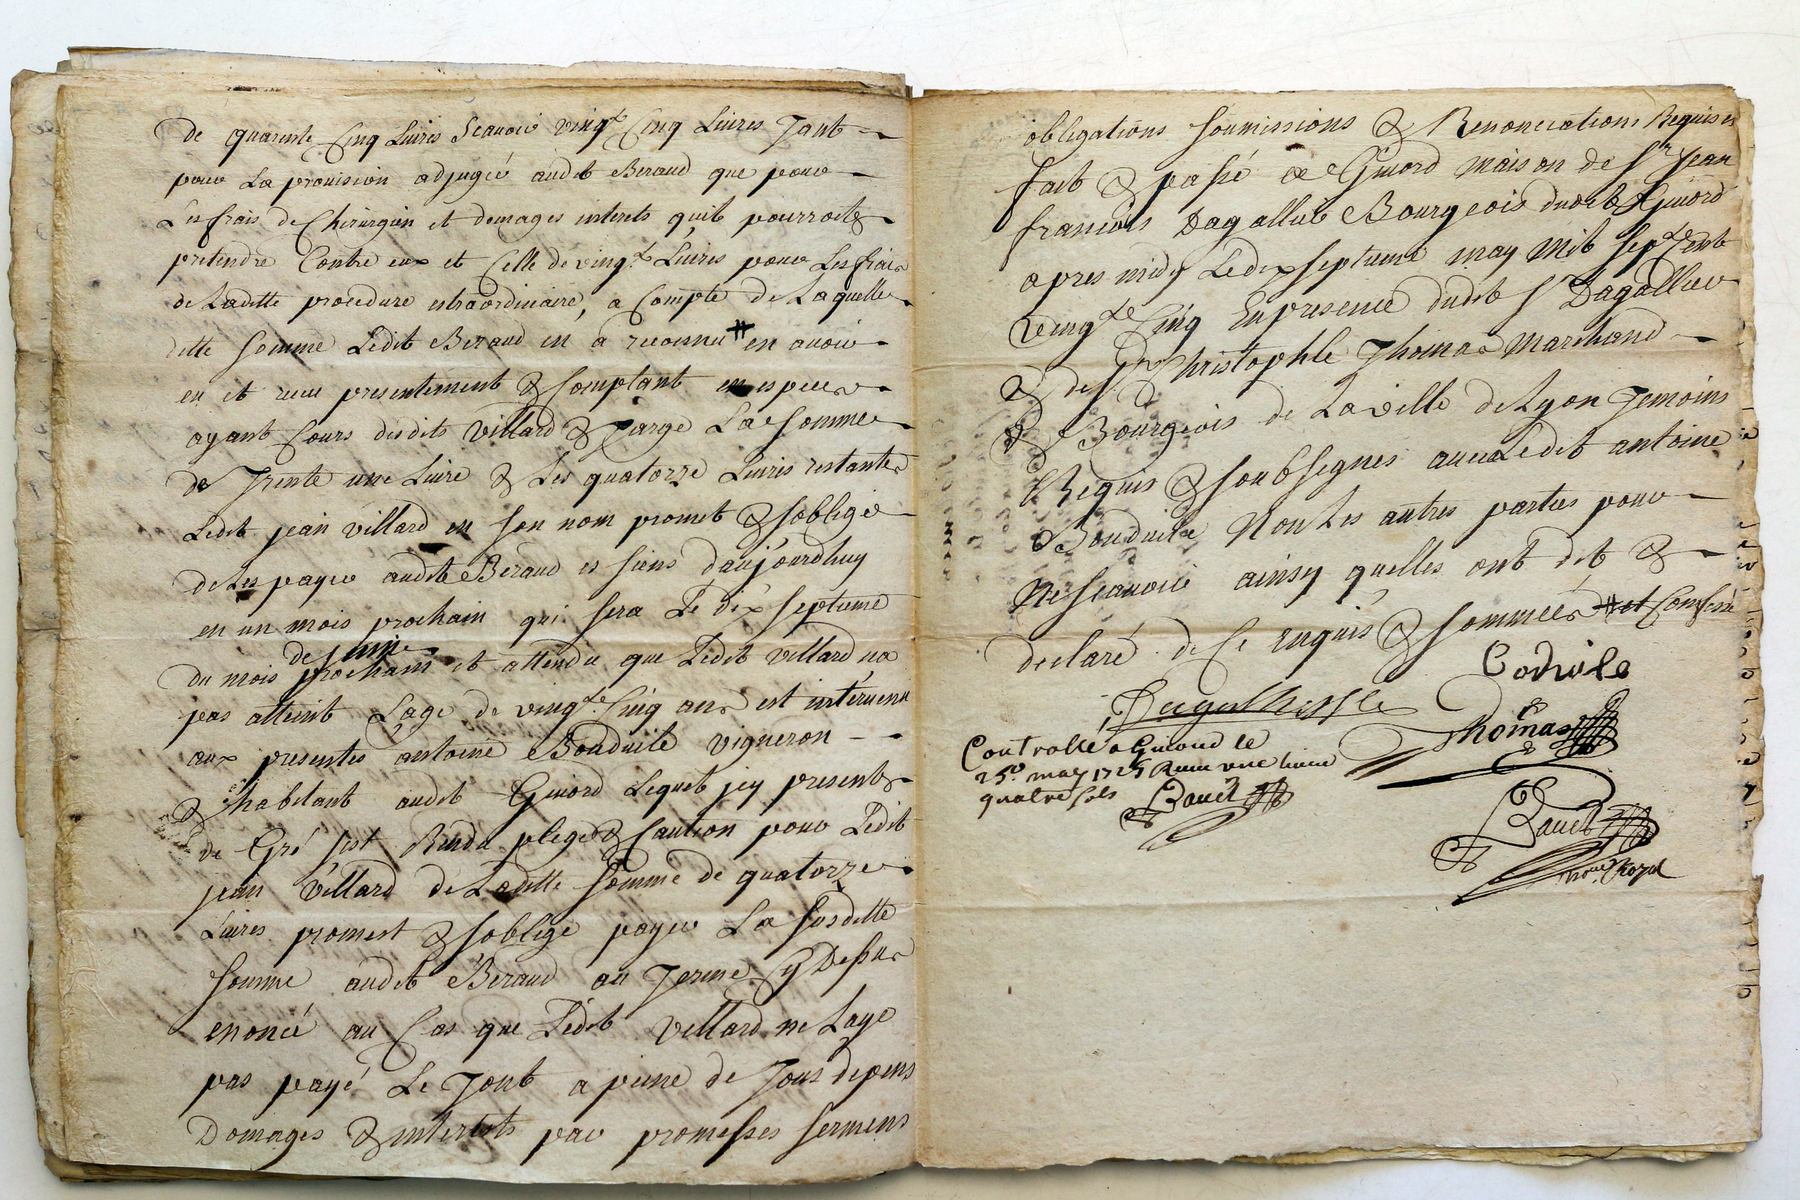 de quarente Cinq Livres Scauoir vingt Cinq Livres Tant
pour La prouision adjugée audit Beraud que pour
Les frais de Chirurgien et domages interets quil pourroit
pretendre Contre eux et Celle de vingt Livres pour Les frais
de Laditte procedure extraordinaire, a Compte de Laquelle
ditte somme Ledit Beraud en a reconnu # en auoir
eu et receu presentement & Comptant en especes
ayant Cours desdits Villard & Farge La somme
de Trente une Livre & Les quatorze Livres restantes
Ledit jean Villard en son nom promet & soblige
de Les payer audit Beraud es siens daujourdhuy
en un mois prochain qui sera Le dix septieme
de juin
du mois prochain et attendu que Ledit Villard na
pas atteint Lage de vingt Cinq ans est interuenu
aux presentes antoine Bonduile vigneron
& habitant audit Giuord Lequel jcy present
de Gré sest Rendu plege & Caution pour Ledit
jean Villard de Laditte somme de quatorze
Livres promest & soblige payer La susditte
somme audit Beraud au Terme Cy Dessus
enoncé au Cas que Ledit Villard ne Laye
pas payé Le Tout a peine de Tous depens
Domages & interests par promesses sermens
obligations soumissions & Renonciations Requises
fait & passé a Giuord maison de Sr Jean
francois Dagallier Bourgeois dudit Giuord
apres midy Le dix septieme may Mil Sept Cent
vingt Cinq En presence dudit Sr Dagallier
& de Sr Christophle Thomas Marchand
& Bourgeois de La ville de Lyon Temoins
Requis & soubsegnes auec Ledit antoine
Bonduile Non Les autres parties pour
Ne scauoir ainsy quelles ont dit &
declaré de Ce enquis & sommées # et Confessé
Thomas
Controllé a Giuord le
25e may 1725 Receu une liure
quatre sols